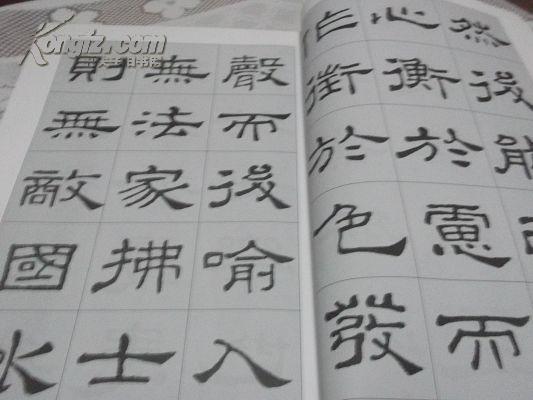 然後能
心衡於慮而
作徵於色發
聲而後喻入
無法家拂士
則無敵國外
Kongfz.com